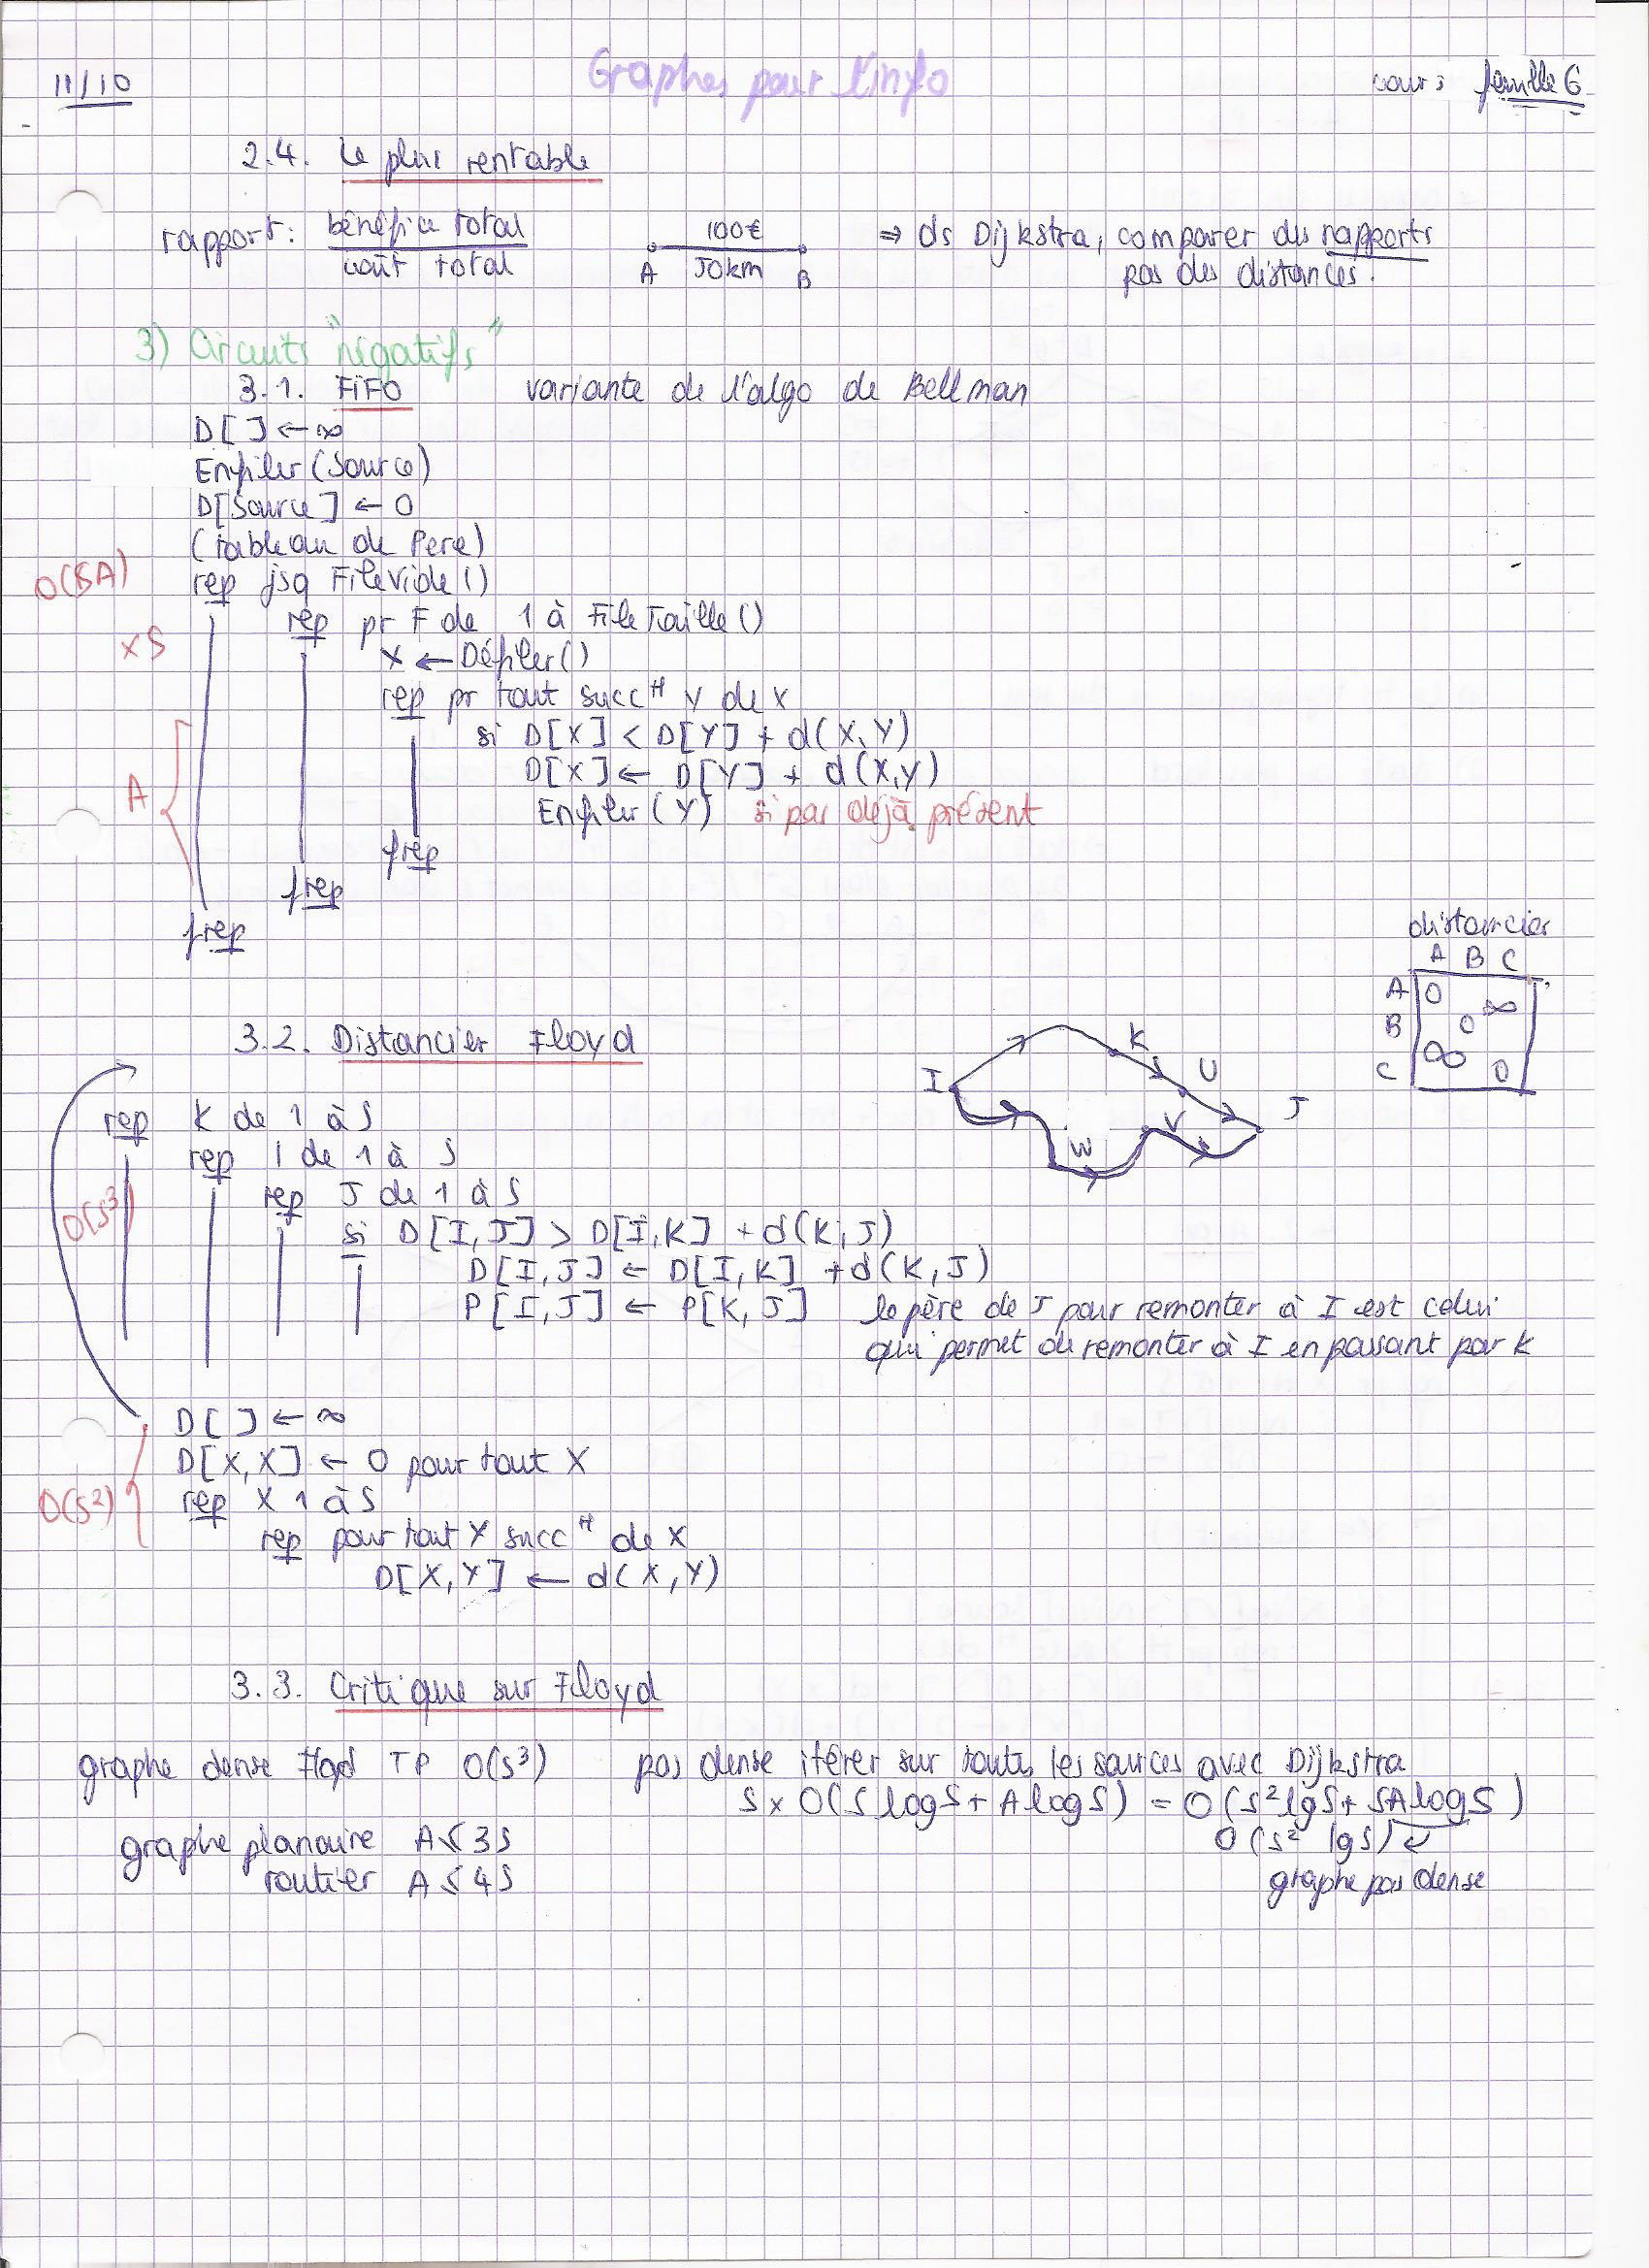 11/10
Graphes pour l'info
cours feuille 6
2.4. Le plus rentable
rapport: bénéfice total / coût total
100€
A 50km B
⇒ ds Dijkstra, comparer des rapports
pas des distances.
3) Circuits "négatifs"
3.1. FiFO variante de l'algo de Bellman
D[ ] ← ∞
Enfiler(Source)
D[Source] ← 0
(tableau de Pere)
O(SA)
rep jsq FileVide()
xS
rep pr F de 1 à FileTaille()
X ← Défiler()
rep pr tout succ^r Y de X
si D[X] < D[Y] + d(X,Y)
A
D[X] ← D[Y] + d(X,Y)
Enfiler(Y) si pas déjà présent
frep
frep
frep
distancier
A B C
A 0 ∞
B 0
C ∞ 0
3.2. Distancier Floyd
I K U J
W V
rep K de 1 à S
rep I de 1 à S
rep J de 1 à S
O(S³)
si D[I,J] > D[I,K] + d(K,J)
D[I,J] ← D[I,K] + d(K,J)
P[I,J] ← P[K,J] le père de J pour remonter à I est celui
qui permet de remonter à I en passant par K
D[ ] ← ∞
D[X,X] ← 0 pour tout X
O(S²)
rep X 1 à S
rep pour tout Y succ^r de X
D[X,Y] ← d(X,Y)
3.3. Critique sur Floyd
graphe dense Floyd TP O(S³) pas dense itérer sur toutes les sources avec Dijkstra
S x O(S logS + A logS) = O(S² lgS + SA logS)
O(S² lgS)
graphe pas dense
graphe planaire A ≤ 3S
routier A ≤ 4S